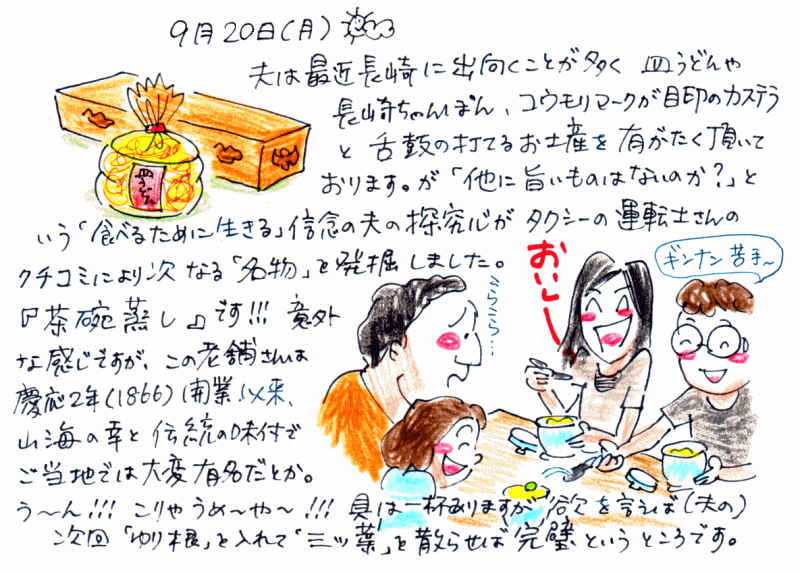 9月20日(月)
夫は最近長崎に出向くことが多く 皿うどんや
長崎ちゃんぽん、コウモリマークが目印のカステラ
と 舌鼓の打てるお土産を 有がたく頂いて
おります。が「他に旨いものはないのか?」と
いう「食べるために生きる」信念の夫の探究心が タクシーの運転士さんの
クチコミにより次なる「名物」を発掘しました。
『茶碗蒸し』です!!! 意外
な感じですが、この老舗さんは
慶応2年(1866)開業以来、
山海の幸と伝統の味付で
ご当地では大変有名だとか。
う〜ん!!! こりゃうめ〜や〜!!! 具は一杯ありますが 欲を言えば(夫の)
次回「ゆり根」を入れて「三ッ葉」を散らせば完璧というところです。
皿うどん
おいしー
ギンナン苦手〜